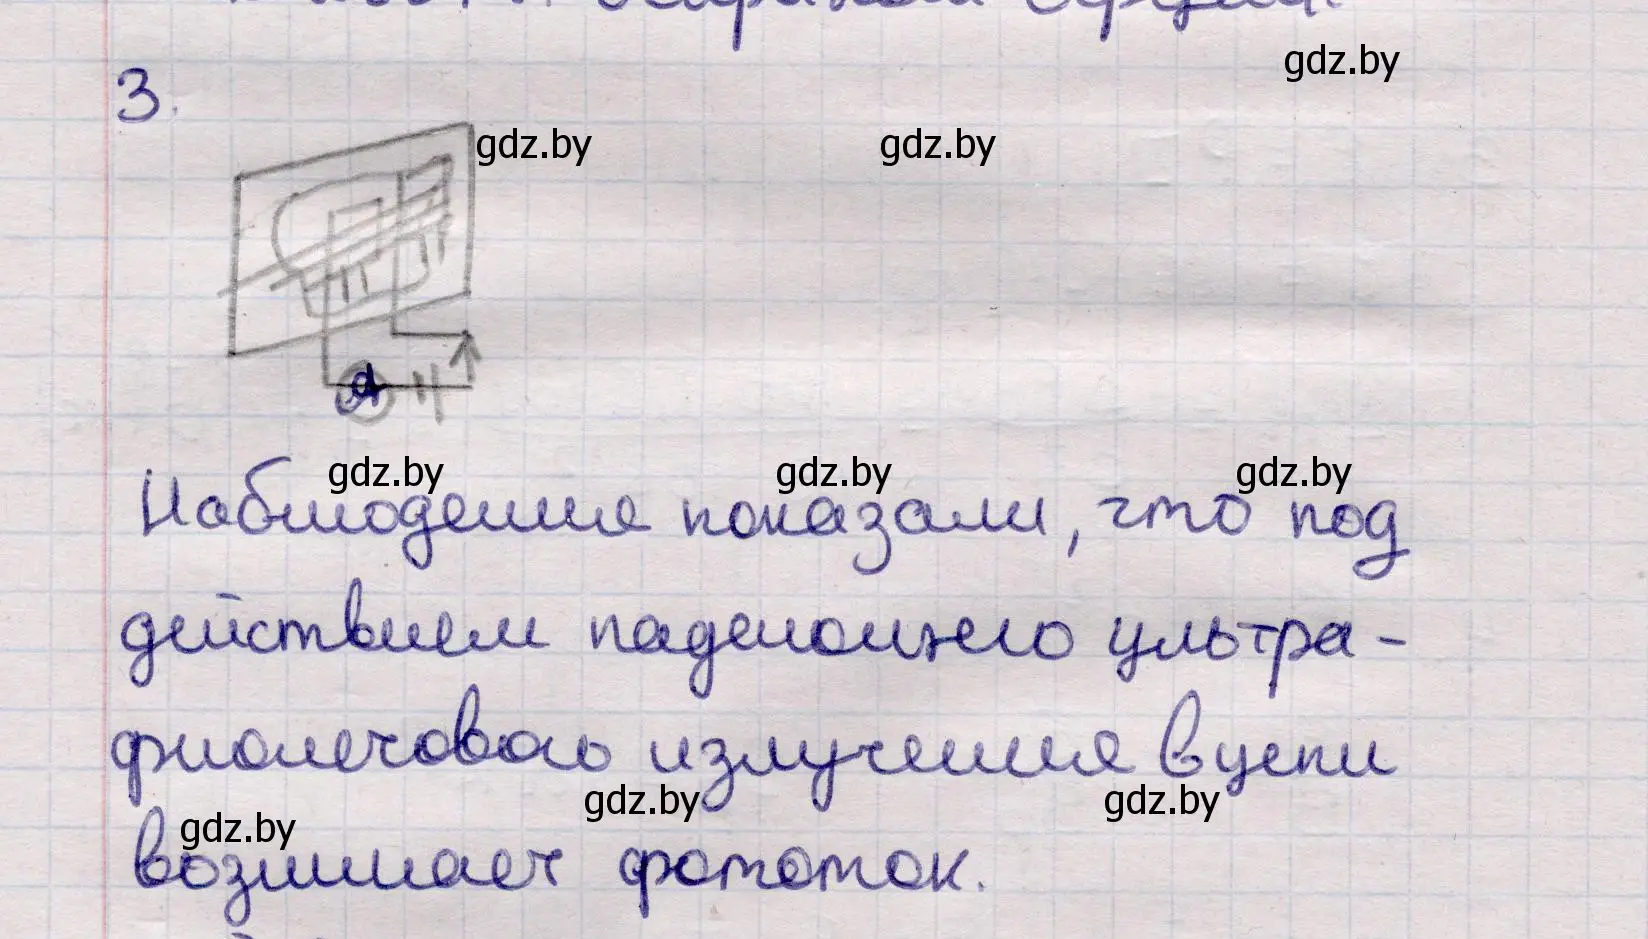 gdz.by
3.
gdz.by gdz.by
A
gdz.by gdz.by gdz.by
Наблюдения показали, что под
действием падающего ультра-
фиолетового излучения в цепи
gdz.by gdz.by gdz.by
возникает фототок.